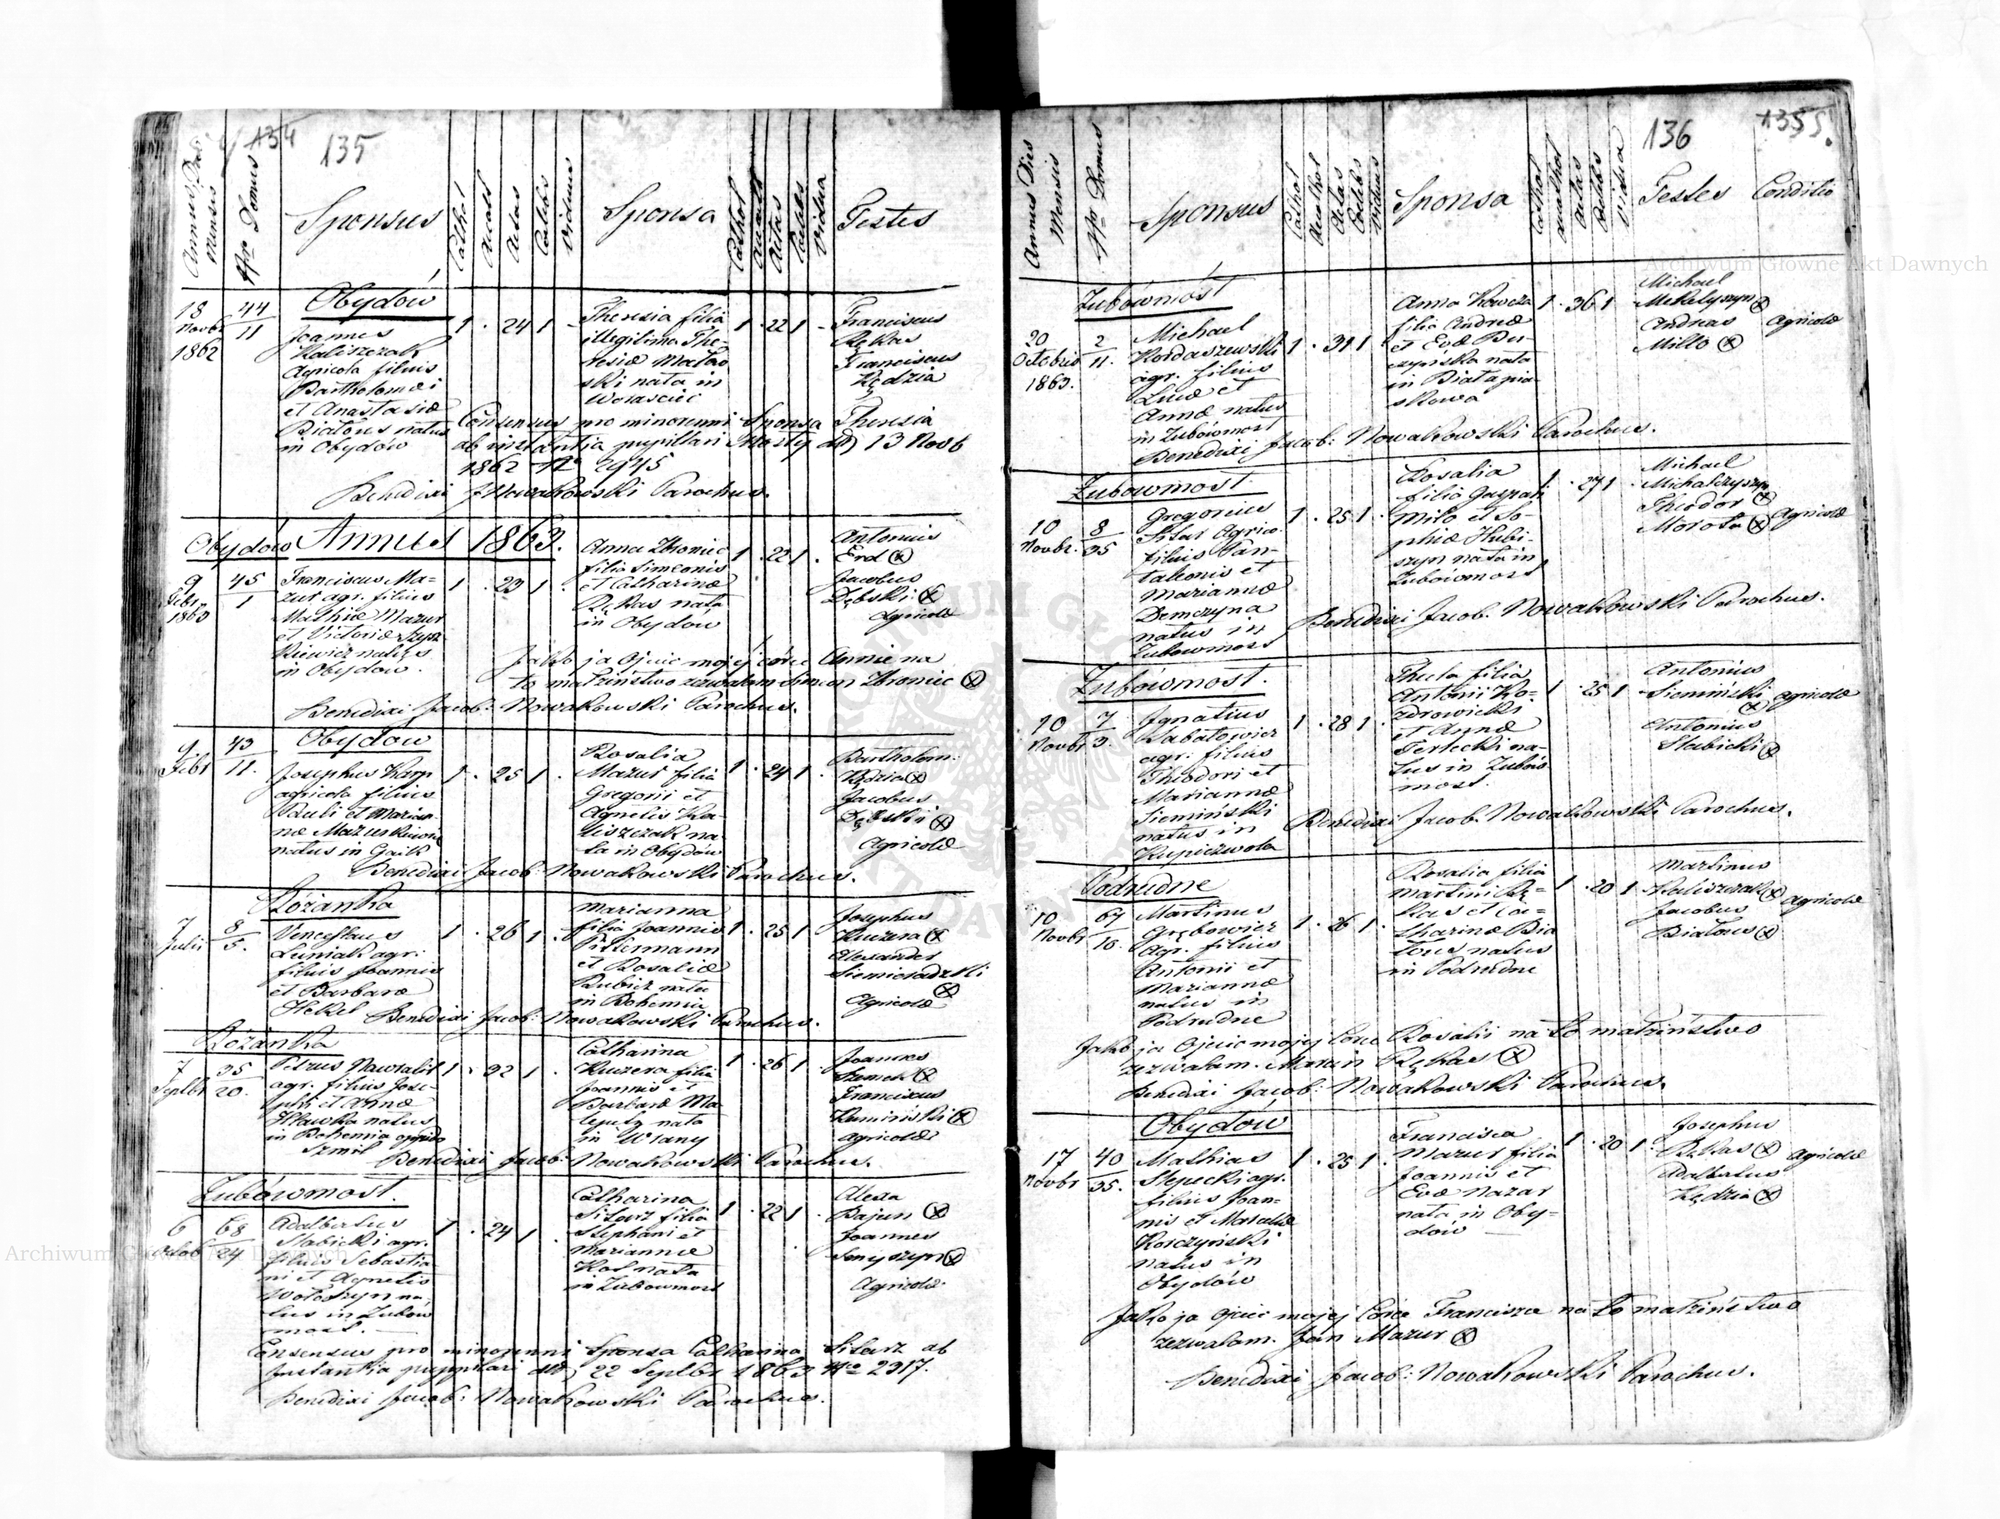 134
135
Annus Dies Mensis
Nro Domus
Sponsus
Cathol
Acath
Aetas
Caelebs
Viduus
Sponsa
Cathol
Acath
Aetas
Caelebs
Vidua
Testes
18
Novbr
1862
44
11
Obydów
Joannes
Kaliszczak
Agricola filius
Bartholomei
et Anastasiæ
Białous natus
in Obydów
1 . 24 1 -
Theresia filia
illegitima The-
resiæ
nata in
1 . 22 1 -
Franciscus
Rękas
Franciscus
Kędzia
Consensus pro minorenni Sponsa Theresia
ab instantia pupillari Mosty dtt 13 Novb
1862 No 2975
Benedixi JNowakowski Parochus.
Obydów Annus 1863.
9
Febr
1863
45
1
Franciscus Ma-
zur agr. filius
Mathiæ Mazur
et Victoriæ
natus
in Obydów
1 . 23 1 .
Anna Zbroniec
filia Simeonis
et Catharinæ
Rękas nata
in Obydów
1 . 22 1 .
Antonius
Erd ⊗
Jacobus
Dębski ⊗
Agricolæ
Jako ja Ojciec mojej córce Annie na
to małżeństwo zezwalam Simon Zbroniec ⊗
Benedixi Jacob: Nowakowski Parochus.
9
Febr
43
11.
Obydów
Josephus Karp
agricola filius
Pauli et Marian-
næ
natus in Gaik
1 . 25 1 .
Rosalia
Mazur filia
Gregorii et
Agnetis Ka-
liszczak na-
ta in Obydów
1 . 24 1 .
Bartholom:
Kędzia ⊗
Jacobus
Dębski ⊗
Agricolæ
Benedixi Jacob: Nowakowski Parochus.
Różanka
7
Julii
8
5.
Venceslaus
agr.
filius Joannis
et Barbaræ
1 . 26 1 .
Marianna
filia Joannis
et Rosaliæ
nata
in Bohemia
1 . 25 1
Josephus
Kuzera ⊗
Alexander
Siemieradzki
⊗
Agricolæ
Benedixi Jacob: Nowakowski Parochus.
Różanka
7
Septbr
35
20.
Petrus Nawratil
agr. filius Jose-
phi et Annæ
Hławka natus
in Bohemia
1 . 32 1 .
Catharina
Kuzera filia
Joannis et
Barbaræ Ma-
nata
in
1 . 26 1 .
Joannes
⊗
Franciscus
Kaminiski ⊗
Agricolæ
Benedixi Jacob: Nowakowski Parochus.
Żubówmost.
6
68
24
Adalbertus
Słabicki agr.
filius Sebastia-
ni et Agnetis
Wołoszyn na-
tus in Zubów
most.
1 . 24 1 .
Catharina
Sitarz filia
Stephani et
Mariannæ
nata
in Zubowmost
1 . 22 1
Alexa
Bajun ⊗
Joannes
Senyszyn ⊗
Agricolæ
Consensus pro minorenni Sponsa Catharina Sitarz ab
Instantia pupillari dtt 22 Septbr 1863 No 2317.
Benedixi Jacob: Nowakowski Parochus.
136
1355.
Annus Dies
Mensis
Nro Domus
Sponsus
Cathol
Acathol
Aetas
Caelebs
Viduus
Sponsa
Cathol
Acathol
Aetas
Caelebs
Vidua
Testes
Conditio
Żubówmost
20
Octobris
1863.
2
11.
Michael
Kordaszewski
agr. filius
Lucæ et
Annæ natus
in Zubówmost
1 . 31 1
Anna
filia Andreæ
et Evæ
nata
in
1 . 36 1
Michael
⊗
Andreas
Millo ⊗
Agricolæ
Benedixi Jacob: Nowakowski Parochus.
Zubowmost.
10
Novbr.
8
35
Gregorius
Sitar Agric.
filius Pan-
talionis et
Mariannæ
Demczyna
natus in
Zubowmost
1 . 25 1 .
Rosalia
filia Gaspari
Millo et So-
phiæ Hubi-
szyn nata in
Zubówmost
1 . 27 1
Michael
Michalczyszyn
⊗
Theodor
Morota ⊗
Agricolæ
Benedixi Jacob: Nowakowski Parochus.
Zubówmost.
10
Novbr
7
3.
Ignatius
Sabatowicz
agr. filius
Theodori et
Mariannæ
Siemiński
natus in
Kupiczwola
1 . 28 1 .
Thecla filia
Antonii Ko-
zdrowicki
et Annæ
Terlecki na-
tus in Zubów
most.
1 . 25 1
Antonius
Siemiński
⊗
Antonius
Słabicki ⊗
agricolæ
Benedixi Jacob: Nowakowski Parochus.
Podrudne
10
Novbr
67
16.
Martinus
Grębowicz
agr. filius
Antonii et
Mariannæ
natus in
Podrudne
1 . 26 1 .
Rosalia filia
Martini Rę-
kas et Ca-
tharinæ Bia
łous natus
in Podrudne
1 . 20 1
Martinus
Kaliszczak ⊗
Jacobus
Białous ⊗
agricolæ
Jako ja Ojciec mojej Córce Rosalii na to małżeństwo
zezwalam. Marcin Rękas ⊗
Benedixi Jacob: Nowakowski Parochus.
Obydów
17
Novbr
40
35.
Mathias
Slepecki agr.
filius Joan-
nis et
Korczyński
natus in
Obydów
1 . 25 1 .
Francisca
Mazur filia
Joannis et
Evæ Nazar
nata in Oby-
dów
1 . 20 1 .
Josephus
Rękas ⊗
Adalbertus
Kędzia ⊗
Agricolæ
Jako ja Ojciec mojej Córce Francisce na to małżeństwo
zezwalam. Jan Mazur ⊗
Benedixi Jacob: Nowakowski Parochus.
Archiwum Główne Akt Dawnych
Archiwum Główne Akt Dawnych